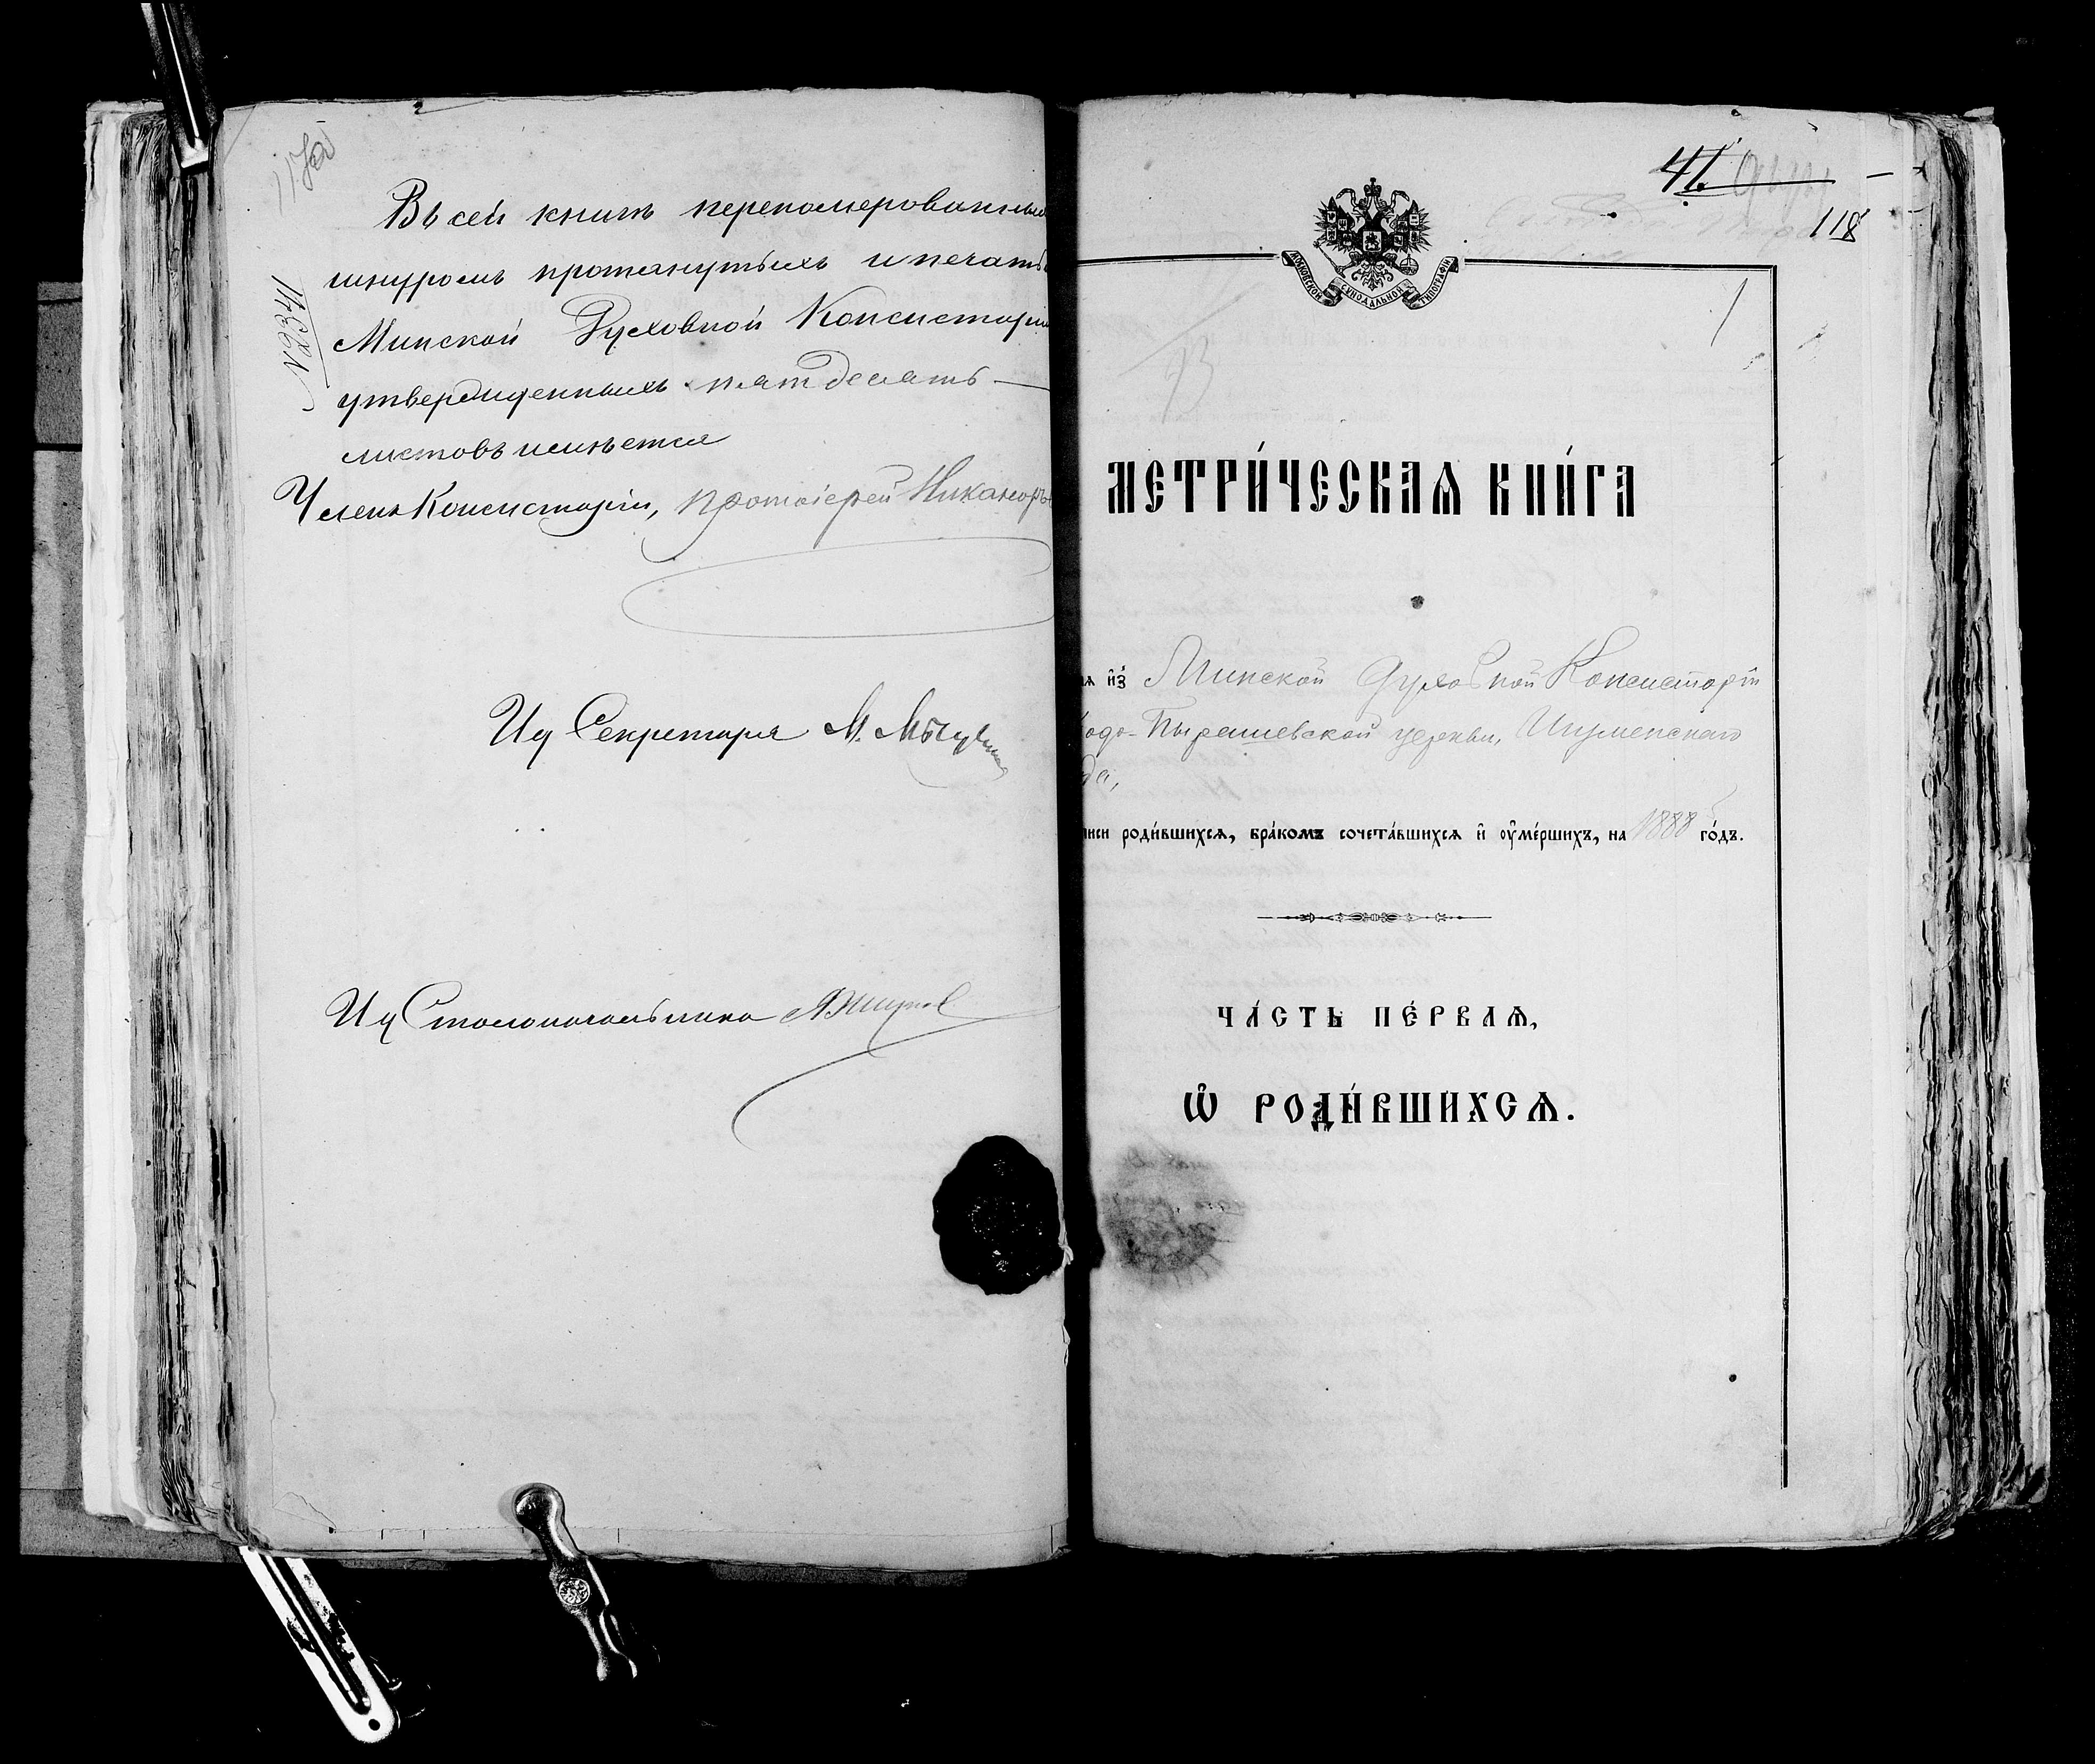 117а
Въ сей книгѣ перенумерованныхъ
шнуромъ протянутыхъ и печатью
Минской Духовной Консисторіи
утвержденныхъ пятдесятъ —
листовъ имѣется
Членъ Консисторіи, протоіерей Никаноръ
№ 2341
Ид Секретаря М.
Ид Столоначальника
41.
118
1
93
МОСКОВСКОЙ СѴНОДАЛЬНОЙ ТИПОГРАФІИ
МЕТРИ́ЧЕСКАѦ КНИ́ГА
из̾ Минской Духовной Консисторіи
Пырашевской церкви, Игуменскаго
да,
писи роди́вшихсѧ, бра́комъ сочета́вшихсѧ и оуме́ршихъ, на 1888 го́дъ.
ЧА́СТЬ ПЕ́РВАѦ,
Ѡ РОДИ́ВШИХСѦ.